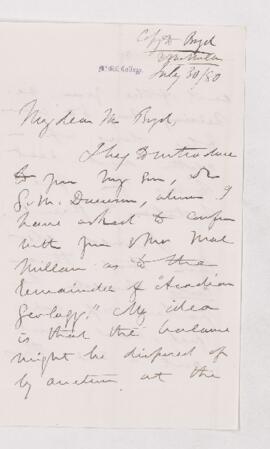 Copy to Boyd
& Macmillan
July 30/80
McGill College.
My dear Mr Boyd,
I beg to introduce
to you my son, Dr
G. M. Dawson, whom I
have asked to confer
with you & Mr Mac
Millan as to the
remainder of "Acadian
Geology." My idea
is that the balance
might be disposed of
by auction at the